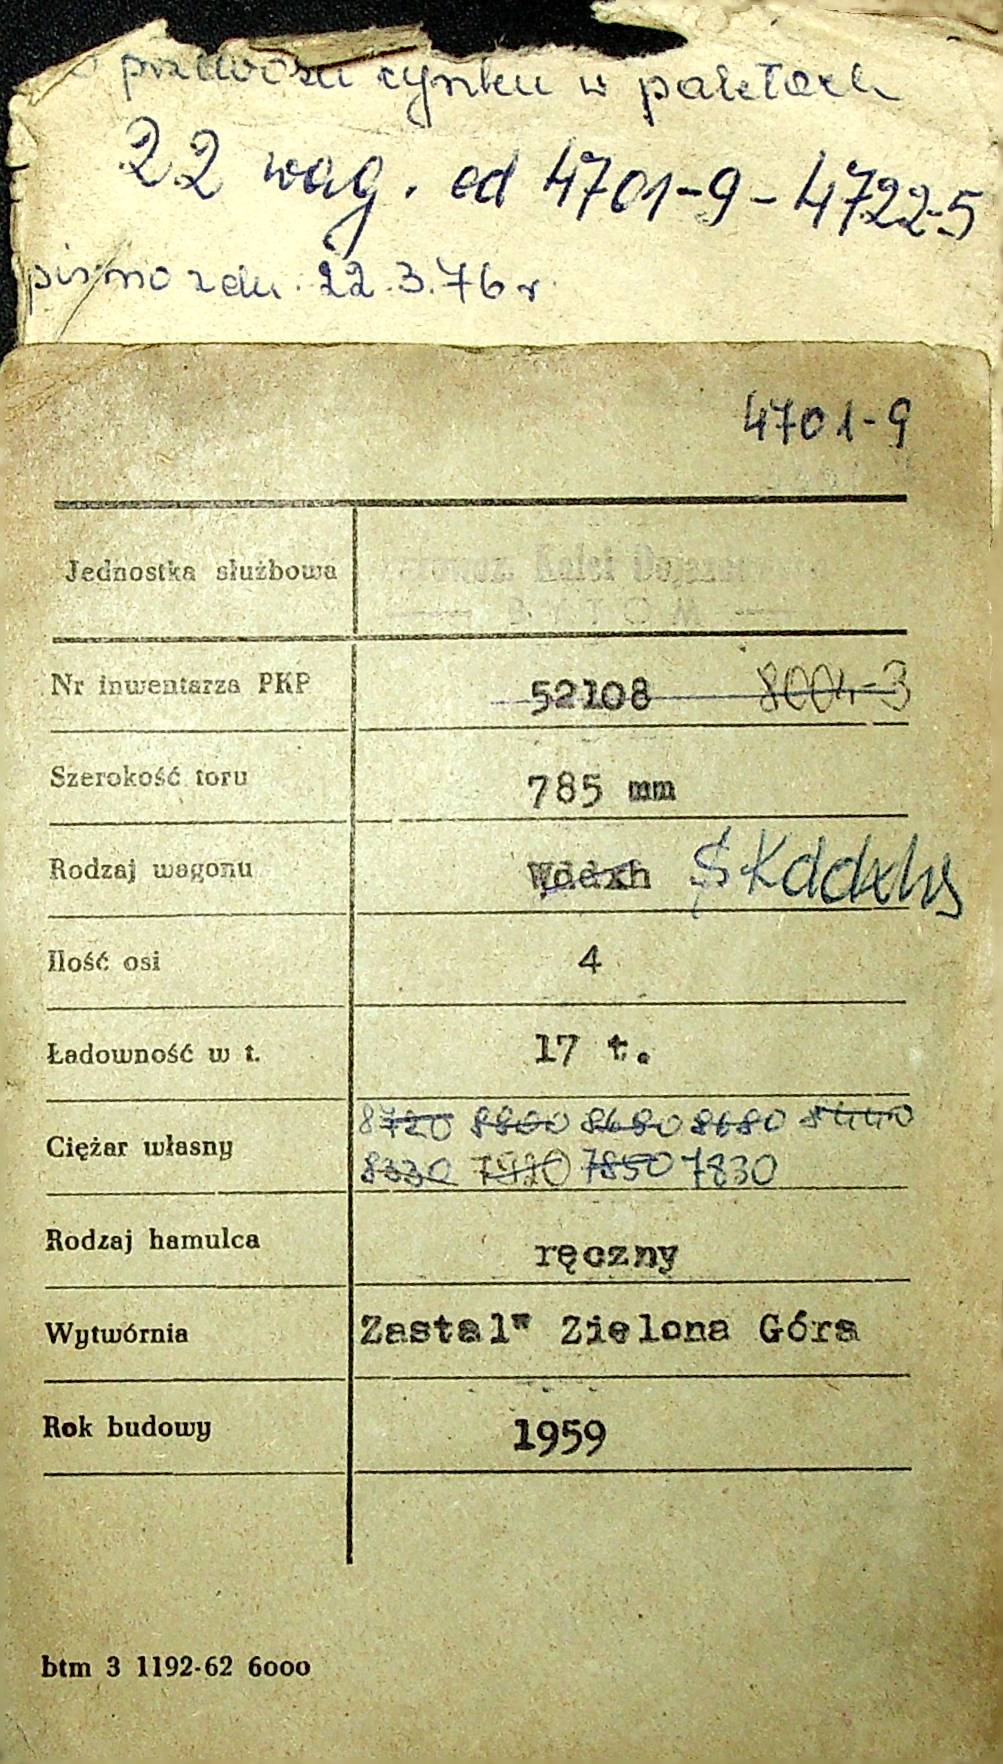 przewozu cynku w paletach
22 wag. od 4701-9 - 4722-5
pismo z dn. 22.3.76 r
4701-9
Jednostka służbowa
Kolei Dojazd
BYTOM
Nr inwentarza PKP 52108 8004-3
Szerokość toru 785 mm
Rodzaj wagonu Wddxh SKddxhs
Ilość osi 4
Ładowność w t. 17 t.
Ciężar własny 8720 8800 8680 8680 8440
8330 7920 7850 7830
Rodzaj hamulca ręczny
Wytwórnia Zastal" Zielona Góra
Rok budowy 1959
btm 3 1192-62 6000